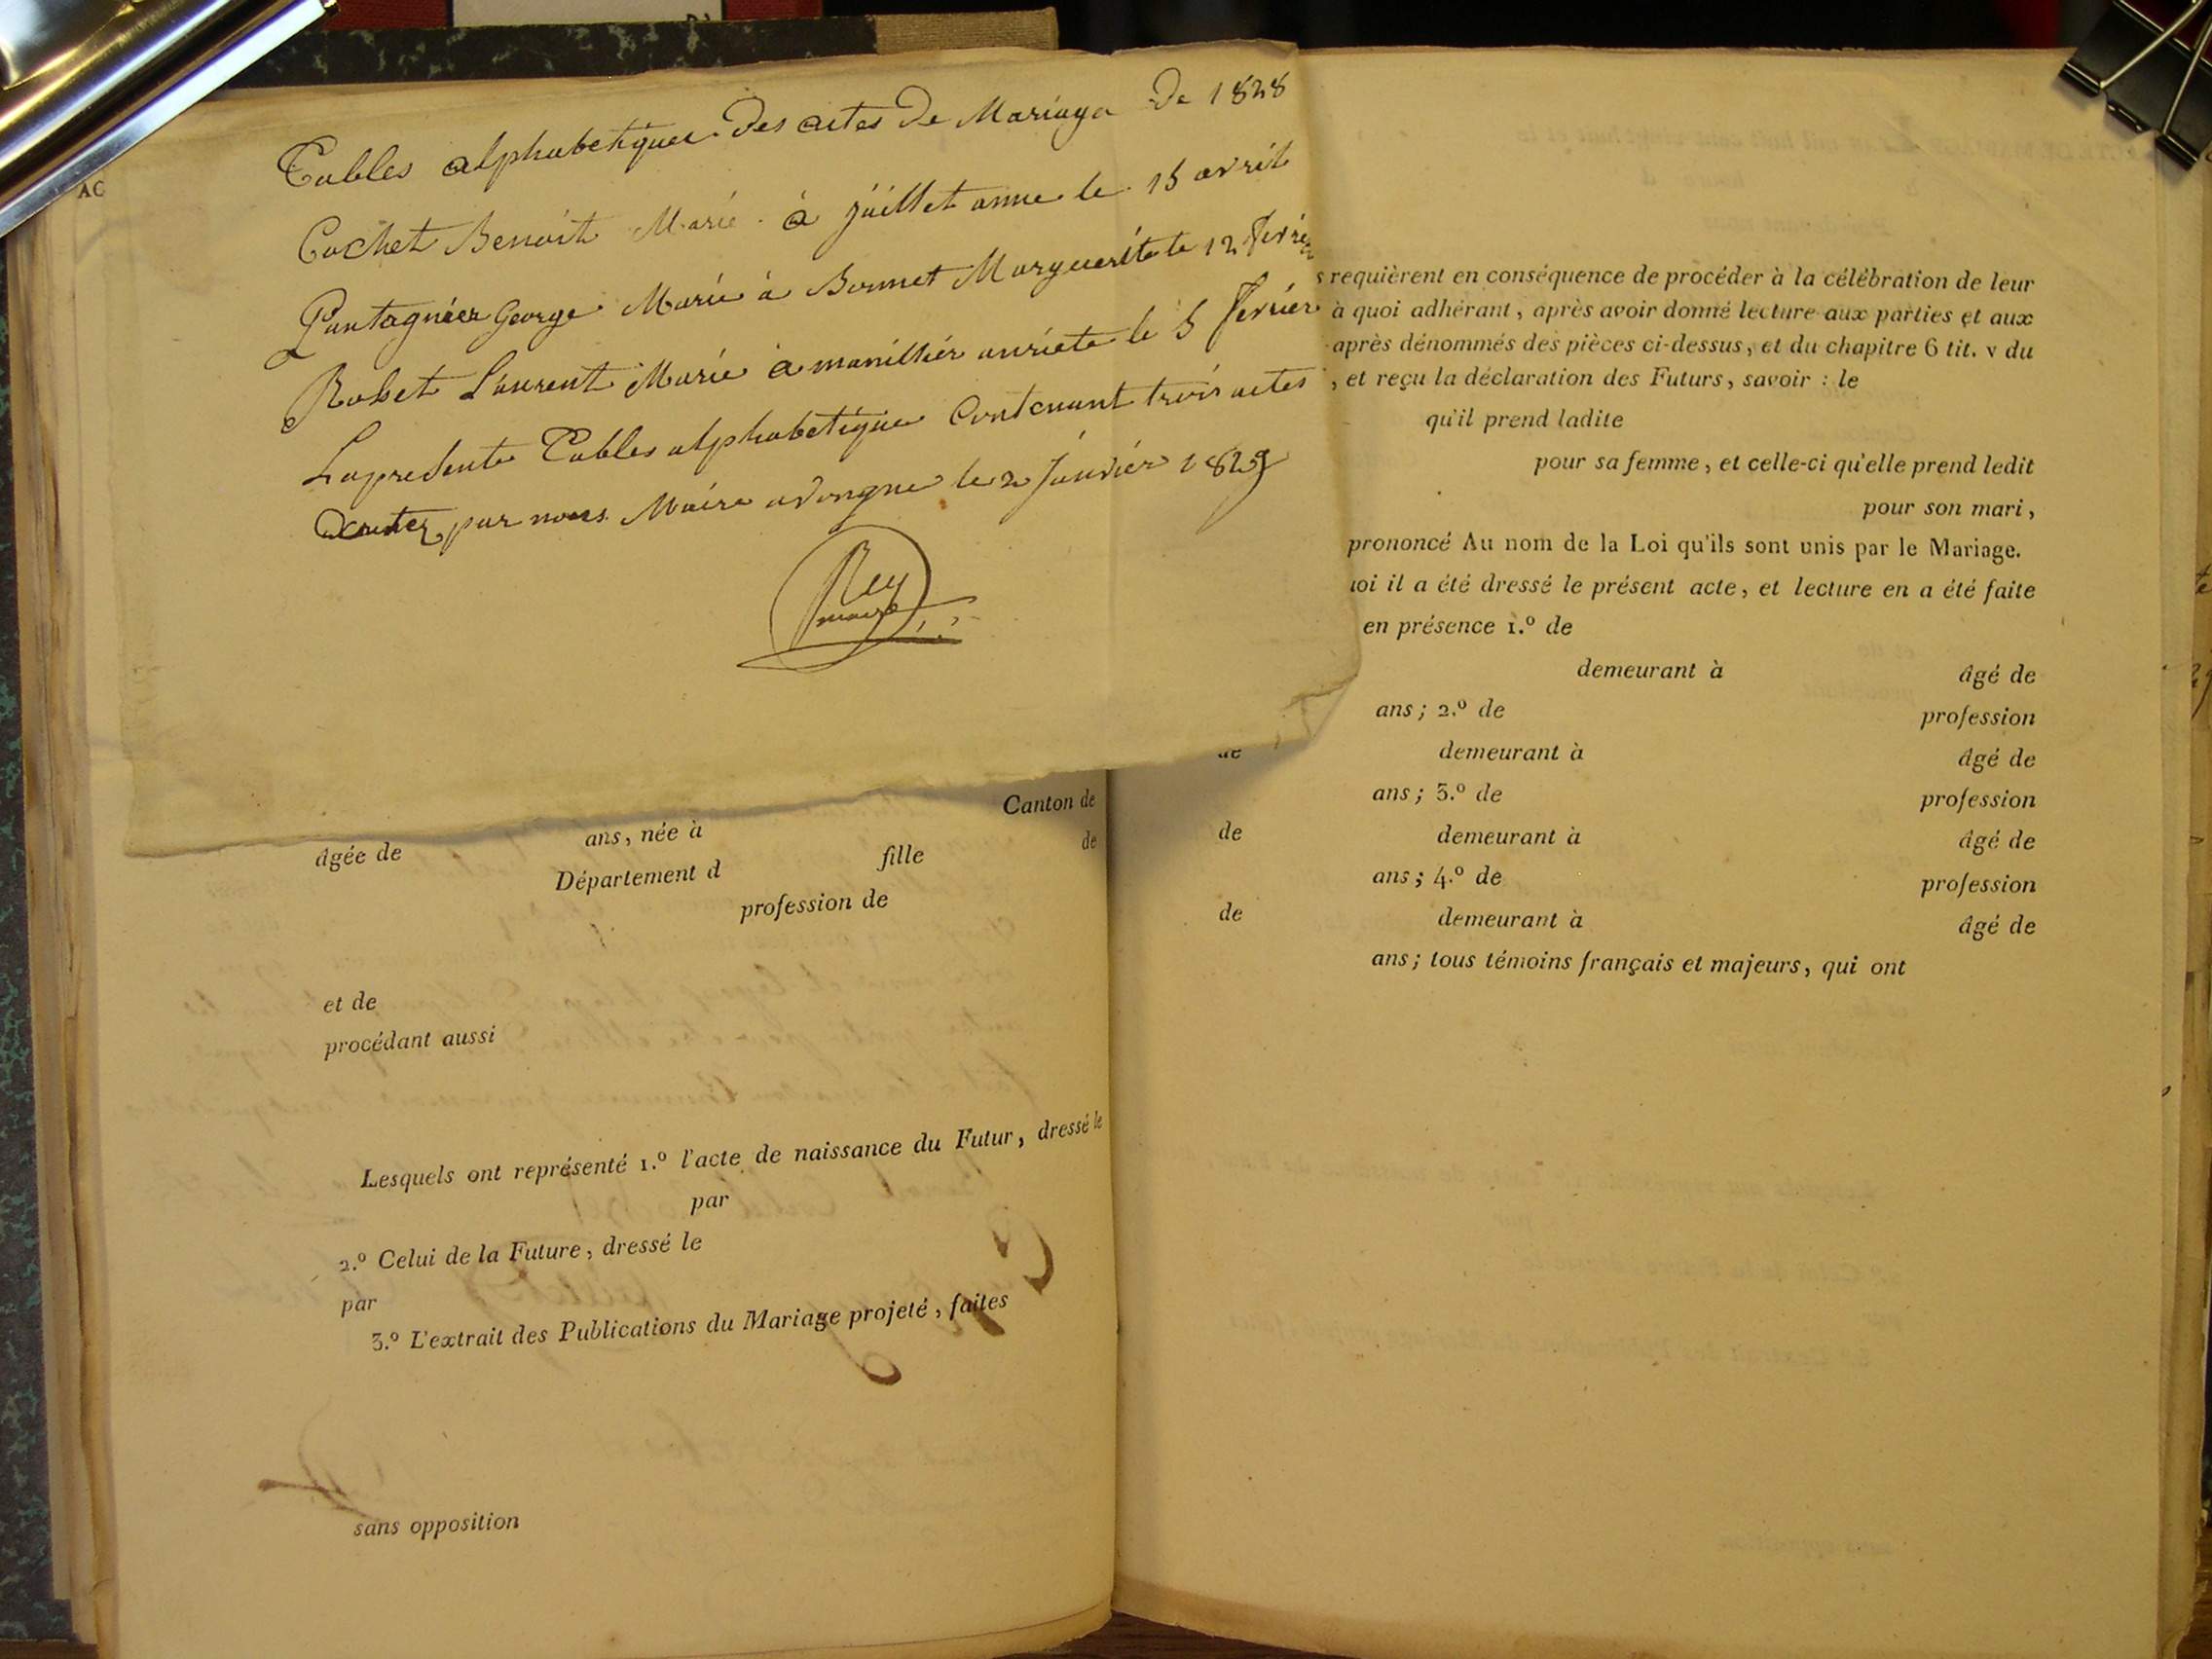 Tables alphabetiques des actes de Mariage de 1828
Cochet Benoit Marié à juillet anne le 15 avril
Pantagnier George Marié à Bonnet Marguerite le 12 fevrier
Robet Laurent Marié à manillier anriete le 5 fevrier
La presente Tables alphabetique Contenant trois actes
par nous Maire le 2 Janvier 1829
Rey
maire
AC
ans, née à
Canton de
âgée de
Département d
fille
de
profession de
et de
procédant aussi
Lesquels ont représenté 1.º l'acte de naissance du Futur, dressé le
par
2.º Celui de la Future, dressé le
par
3.º L'extrait des Publications du Mariage projeté, faites
sans opposition
s requièrent en conséquence de procéder à la célébration de leur
à quoi adhérant, après avoir donné lecture aux parties et aux
après dénommés des pièces ci-dessus, et du chapitre 6 tit. v du
, et reçu la déclaration des Futurs, savoir : le
qu'il prend ladite
pour sa femme, et celle-ci qu'elle prend ledit
pour son mari,
prononcé Au nom de la Loi qu'ils sont unis par le Mariage.
uoi il a été dressé le présent acte, et lecture en a été faite
en présence 1.º de
demeurant à âgé de
ans; 2.º de profession
de demeurant à âgé de
ans; 3.º de profession
de demeurant à âgé de
ans; 4.º de profession
de demeurant à âgé de
ans; tous témoins français et majeurs, qui ont